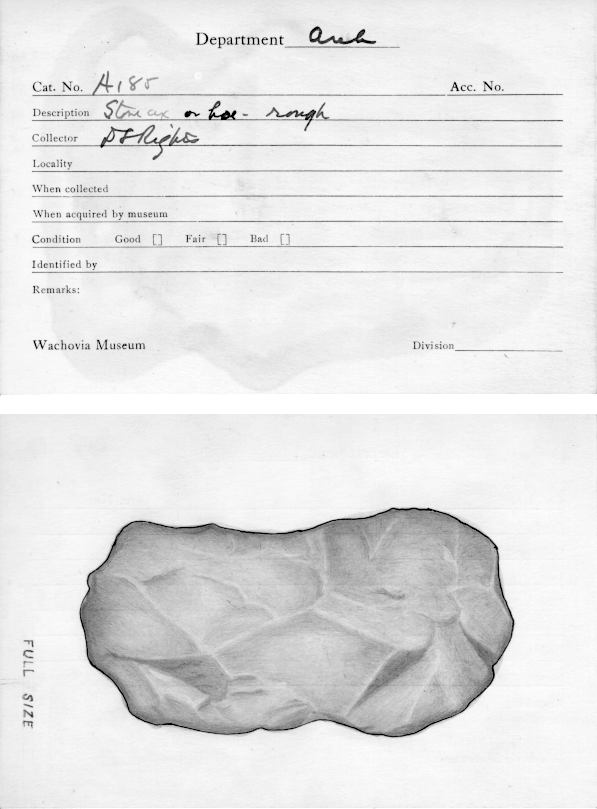 Department Arch
Cat. No. A185 Acc. No.
Description Stone ax or hoe - rough
Collector D S Rights
Locality
When collected
When acquired by museum
Condition Good [] Fair [] Bad []
Identified by
Remarks:
Wachovia Museum Division
FULL SIZE